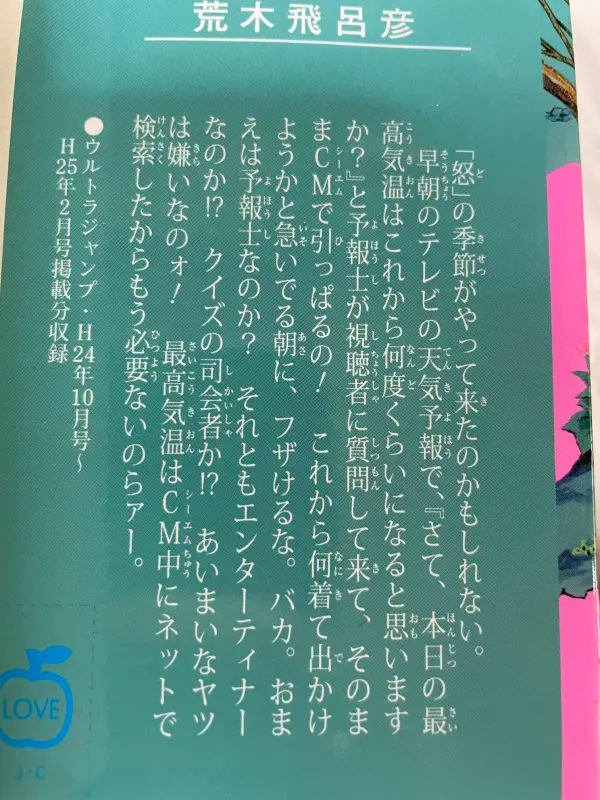 荒木飛呂彦
「怒」の季節がやって来たのかもしれない。
早朝のテレビの天気予報で、『さて、本日の最
高気温はこれから何度くらいになると思います
か?』と予報士が視聴者に質問して来て、そのま
まCMで引っぱるの! これから何着て出かけ
ようかと急いでる朝に、フザけるな。バカ。おま
えは予報士なのか? それともエンターティナー
なのか!? クイズの司会者か!? あいまいなヤツ
は嫌いなのォ! 最高気温はCM中にネットで
検索したからもう必要ないのらァー。
●ウルトラジャンプ・H24年10月号~
H25年2月号掲載分収録
LOVE
J・C